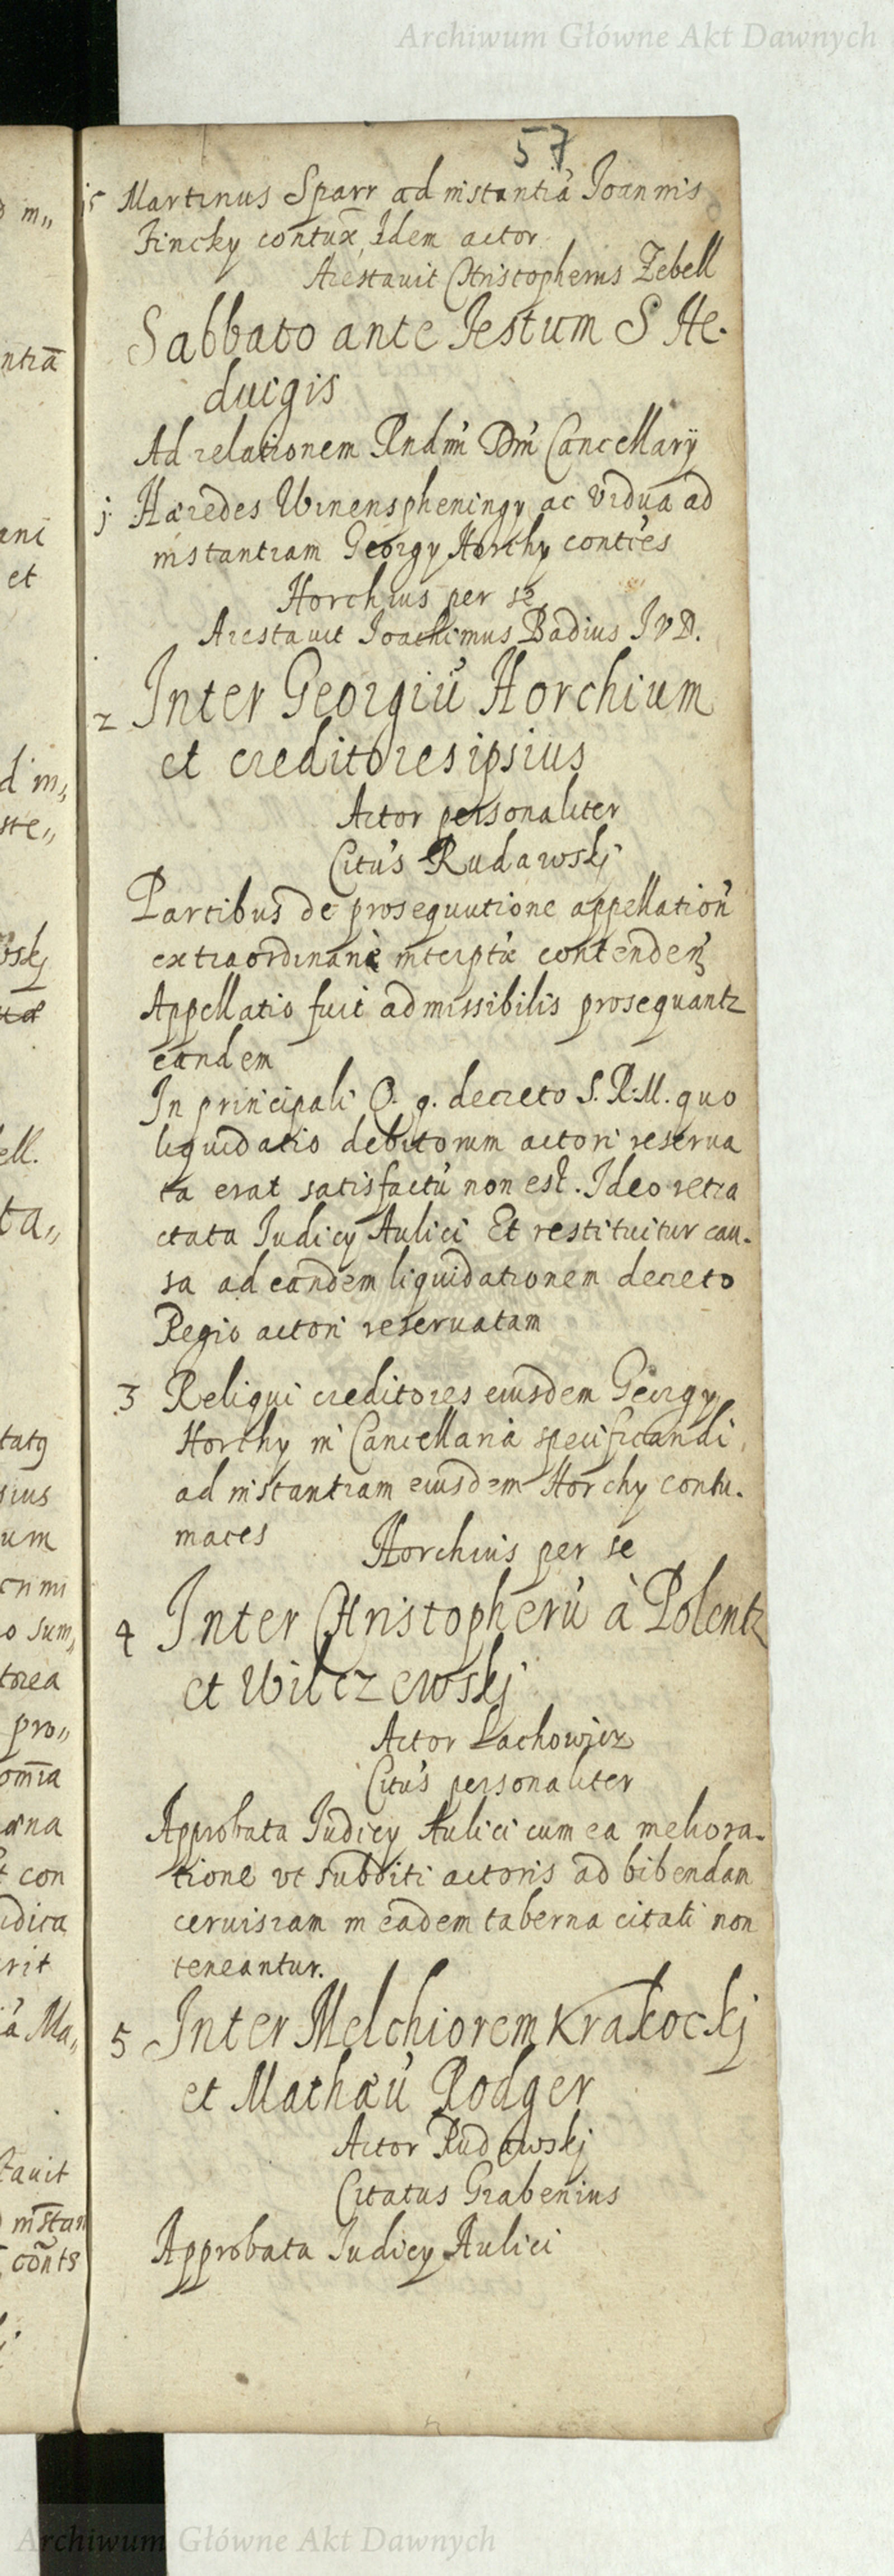 Archiwum Główne Akt Dawnych
57
15 Martinus Sparr ad instantiā Joannis
Fincky contux̄ Idem actor
Arestavit Christopherus Zebell
Sabbato ante Festum S He-
duigis
Ad relationem Rndmi Dmi Cancellarÿ
j Hæredes Winenspheningy ac vidua ad
instantiam Georgy Horchy conties
Horchius per se
Arestavit Joachimus Badius J V D.
2 Inter Georgiū Horchium
et creditores ipsius
Actor personaliter
Citus Rudawskj
Partibus de prosequutione appellation
extraordinariè interptæ contenden
Appellatio fuit admissibilis prosequantz
eandem
In principali Q. g. decreto S. R. M. quo
liquidatio debitorum actori reserua
ta erat satisfactū non est. Ideo retra
ctata Judicy Aulici Et restituitur cau-
sa ad eandem liquidationem decreto
Regio actori reseruatam
3 Reliqui creditores eiusdem Georgy
Horchy in Cancellaria specificandi
ad instantiam eiusdem Horchy contu-
maces
Horchius per se
4 Inter Christopherū à Polentz
et Wilczewskj
Actor Lachowicz
Citus personaliter
Approbata Judicy Aulici cum ea meliora-
tione vt subditi actoris ad bibendam
ceruisiam in eadem taberna citati non
teneantur.
5 Inter Melchiorem Krakockj
et Mathæū Rodger
Actor Rudawskj
Citatus Grabenius
Approbata Judicy Aulici
Archiwum Główne Akt Dawnych